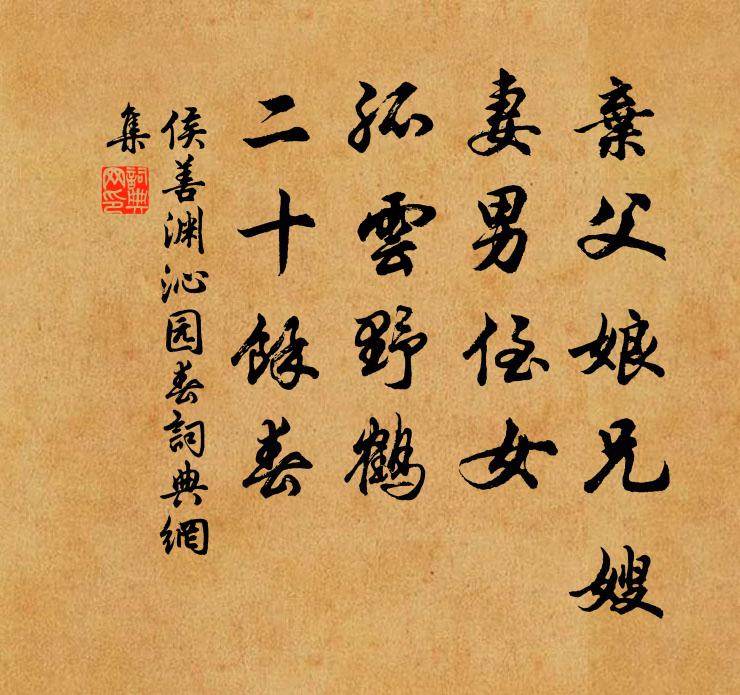 棄父娘兄嫂
妻男侄女
孤雲野鶴
二十餘春
侯善渊沁园春詞典網
集
詞典
網印